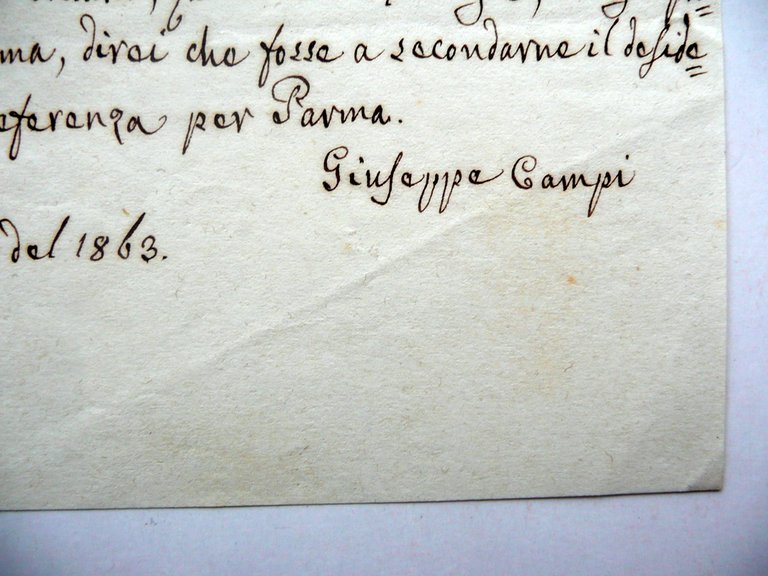 ma, direi che fosse a secondarne il deside=
eferenza per Parma.
Giuseppe Campi
del 1863.